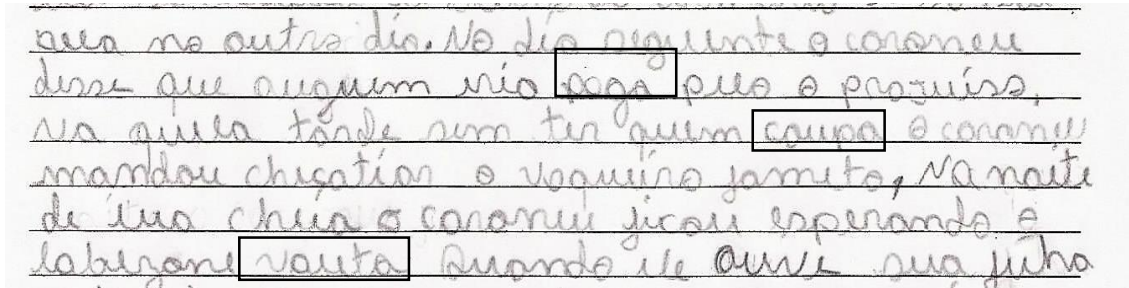 para no outro dia. No dia seguinte o coroneu
desse que auguem viio paga pelo o projuiso.
Na quela tarde sem ter quem caupa o coroneu
mandou chicatiar o vaqueiro jameto, Na noite
de lua cheia o coroneu ficou esperando o
labizone vauta Quando ele ouvi sua filha